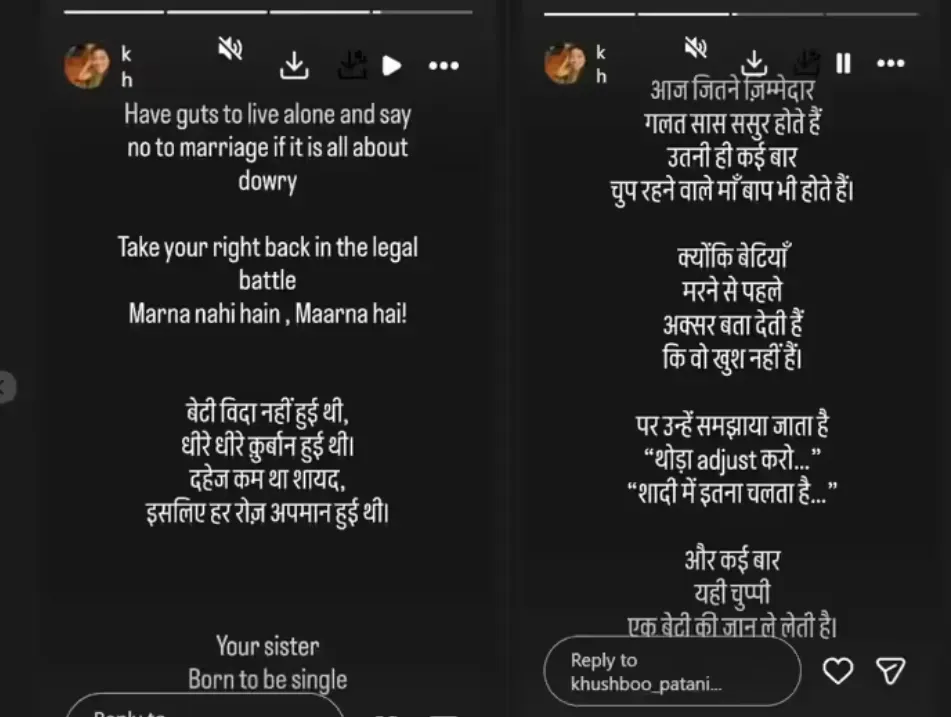 k
h
Have guts to live alone and say
no to marriage if it is all about
dowry
Take your right back in the legal
battle
Marna nahi hain , Maarna hai!
बेटी विदा नहीं हुई थी,
धीरे धीरे क़ुर्बान हुई थी।
दहेज कम था शायद,
इसलिए हर रोज़ अपमान हुई थी।
Your sister
Born to be single
Reply to
k
h
आज जितने ज़िम्मेदार
गलत सास ससुर होते हैं
उतनी ही कई बार
चुप रहने वाले माँ बाप भी होते हैं।
क्योंकि बेटियाँ
मरने से पहले
अक्सर बता देती हैं
कि वो खुश नहीं हैं।
पर उन्हें समझाया जाता है
“थोड़ा adjust करो...”
“शादी में इतना चलता है...”
और कई बार
यही चुप्पी
एक बेटी की जान ले लेती है।
Reply to
khushboo_patani...